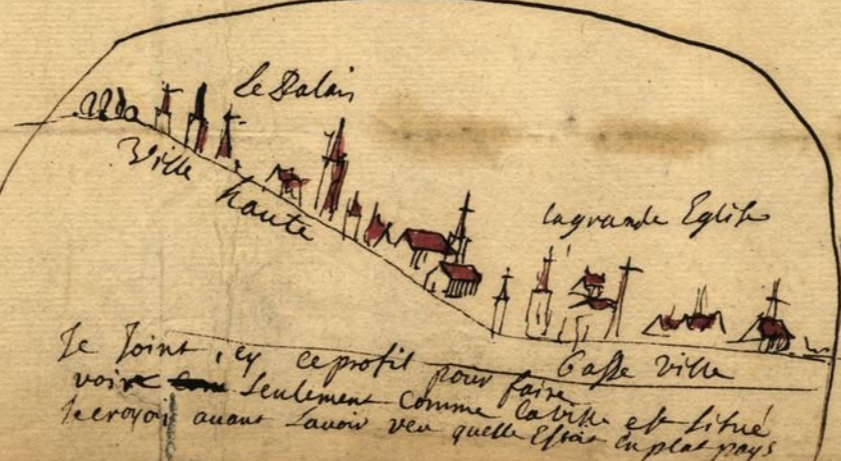 le Palais
Ville haute
la grande Eglise
basse ville
Je Joint, icy ce profil pour faire
voire Seulement Comme la ville est situé
Je croyois avant davoir veu quelle Estoit En plat pays